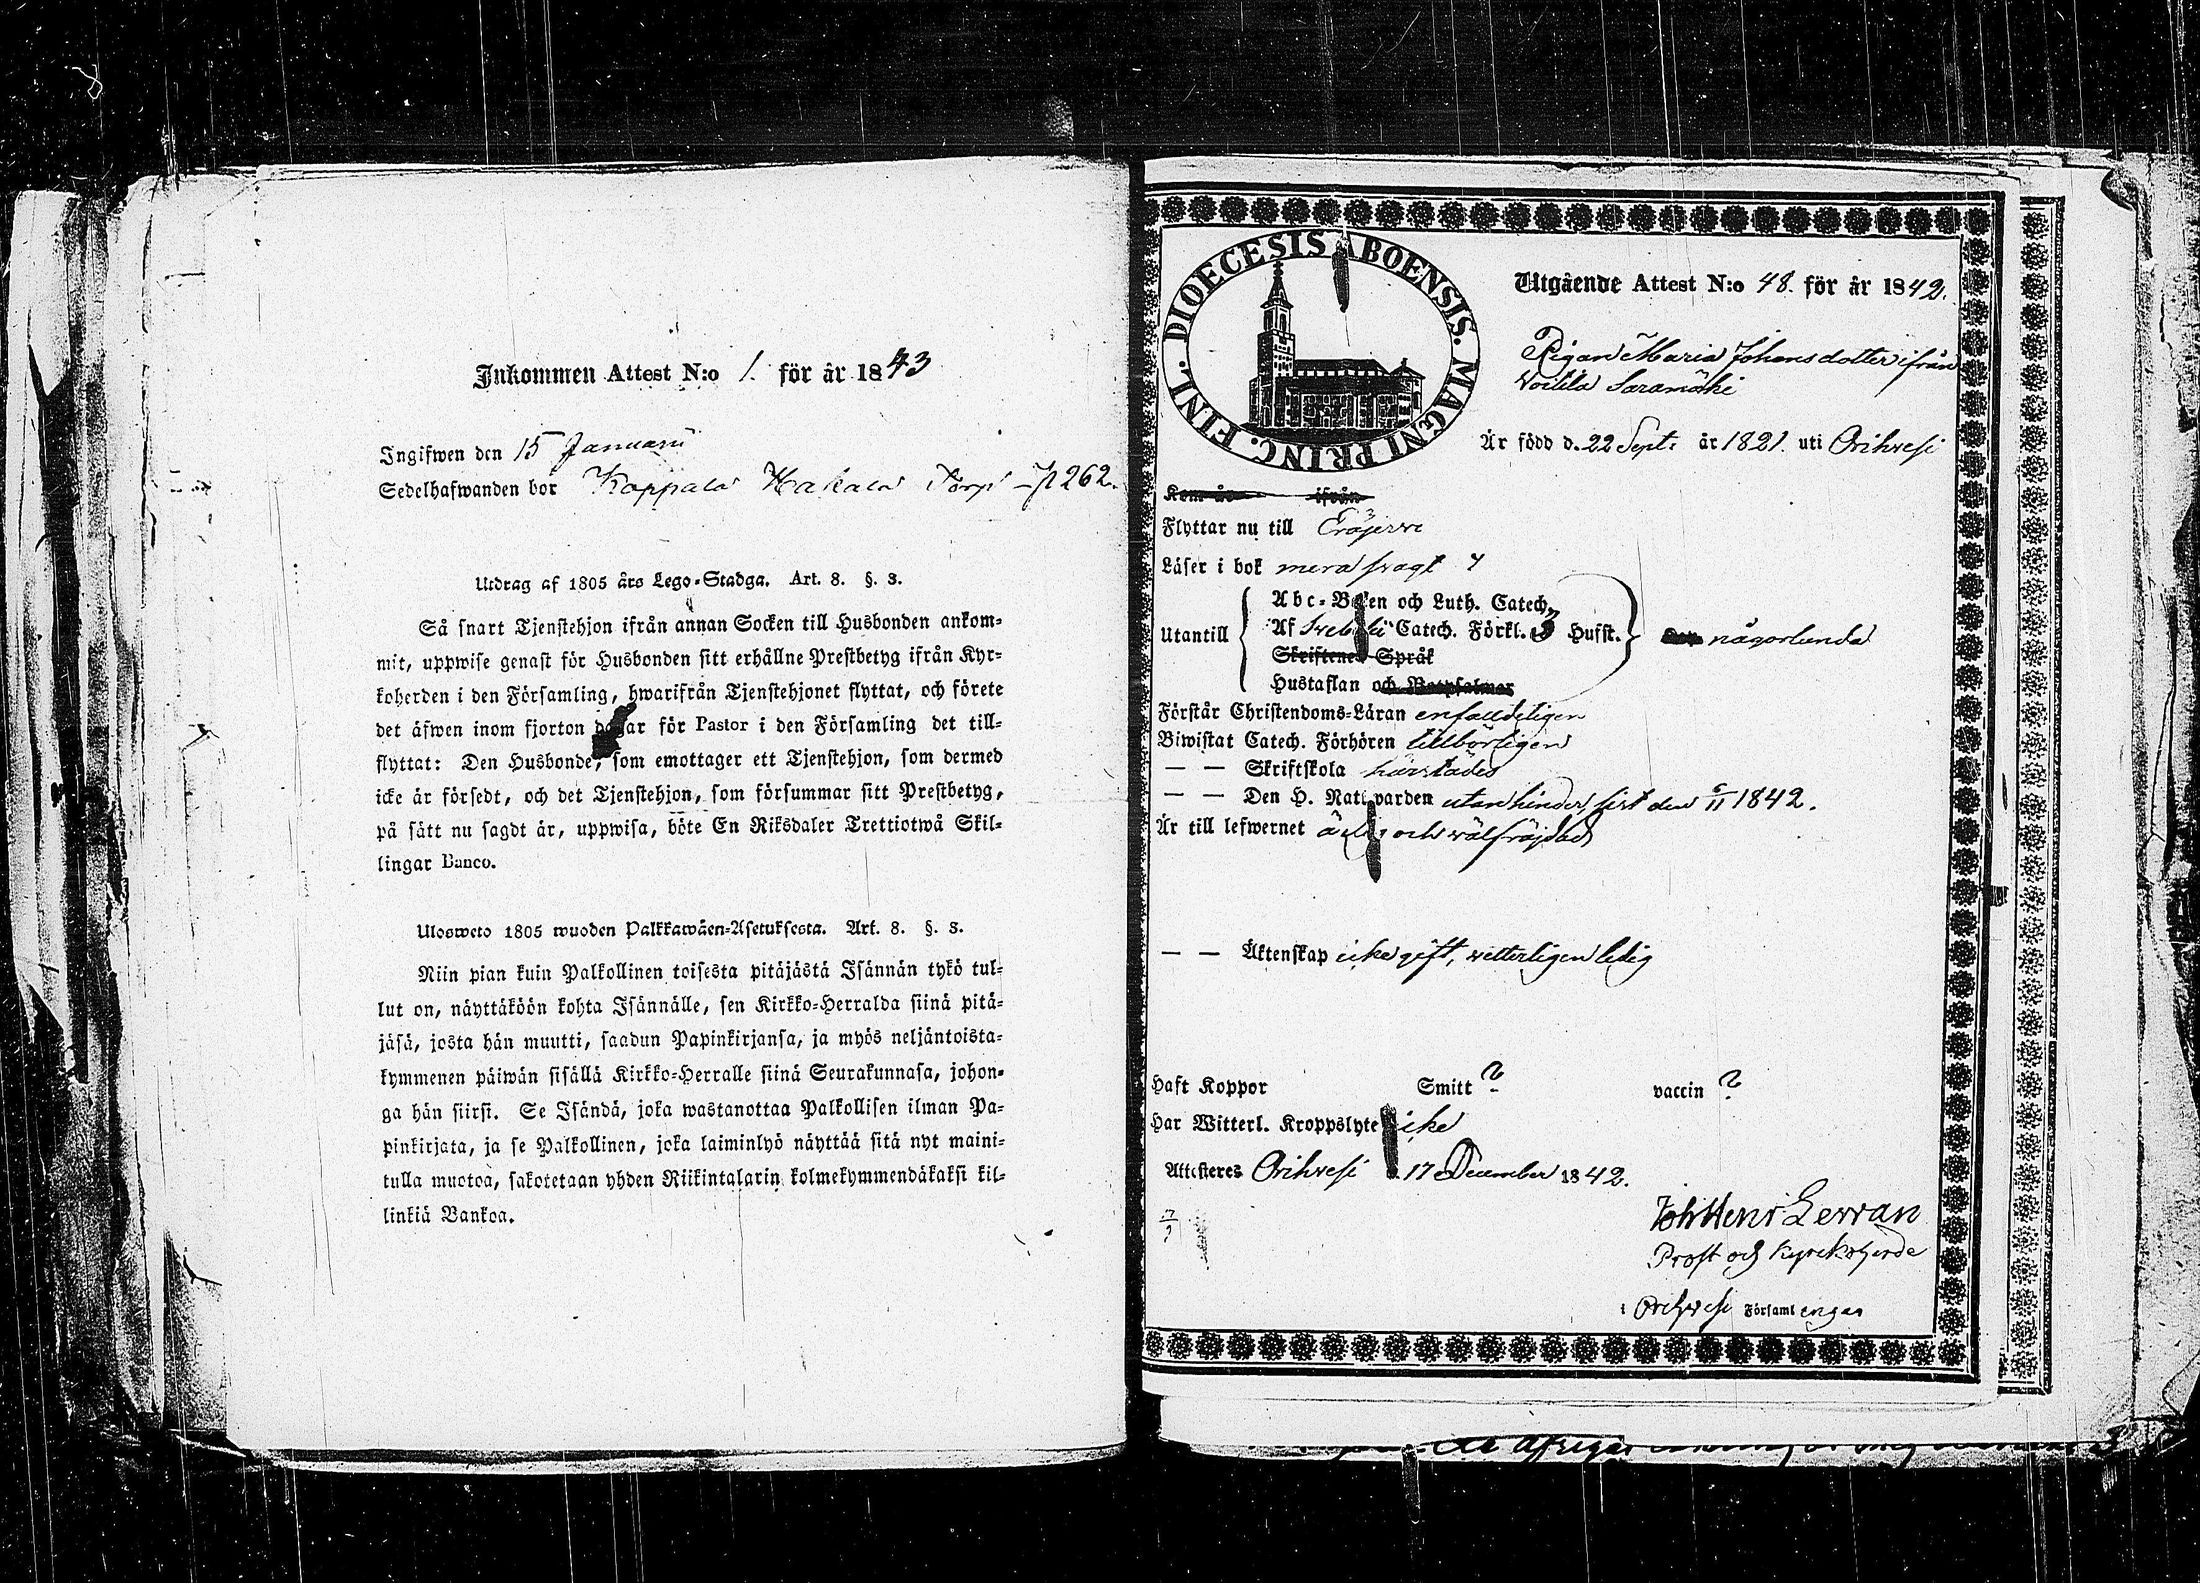 Inkommen Attest N:o 1. för år 1843
Ingifwen den 15 Januarii
Sedelhafwanden bor Koppala Hakala Torp - p 262.
Utdrag af 1805 års Lego-Stadga. Art. 8. §. 3.
Så snart Tjenstehjon ifrån annan Socken till Husbonden ankom-
mit, uppwise genast för Husbonden sitt erhållne Prestbetyg ifrån Kyr-
koherden i den Församling, hwarifrån Tjenstehjonet flyttat, och förete
det äfwen inom fjorton dagar för Pastor i den Församling det till-
flyttat: Den Husbonde, som emottager ett Tjenstehjon, som dermed
icke är försedt, och det Tjenstehjon, som försummar sitt Prestbetyg,
på sätt nu sagdt är, uppwisa, böte En Riksdaler Trettiotwå Skil-
lingar Banco.
Ulosweto 1805 wuoden Palkkawäen-Asetuksesta. Art. 8. §. 3.
Niin pian kuin Palkollinen toisesta pitäjästä Isännän tykö tul-
lut on, näyttäköön kohta Isännälle, sen Kirkko-Herralda siinä pitä-
jäsä, josta hän muutti, saadun Papinkirjansa, ja myös neljäntoista-
kymmenen päiwän sisällä Kirkko-Herralle siinä Seurakunnasa, johon-
ga hän siirsi. Se Isändä, joka wastanottaa Palkollisen ilman Pa-
pinkirjata, ja se Palkollinen, joka laiminlyö näyttää sitä nyt maini-
tulla muotoa, sakotetaan yhden Riikintalarin kolmekymmendäkaksi kil-
linkiä Bankoa.
DIOECESIS ABOENSIS. MAGNI PRINC. FINL.
Utgående Attest N:o 48. för år 1842.
Pigan Maria Johansdotter ifrån
Voitila Saramäki
Är född d. 22 Sept: år 1821. uti Orihvesi
Kom år ifrån
Flyttar nu till Eräjervi
Läser i bok mera svagt
Abc-Boken och Luth. Catech.
Utantill Af Svebilii Catech. Förkl. 3 Hufst. någorlunda
Skriftenes Språk
Hustaflan och Botpsalmer
Förstår Christendoms-Läran enfalldeligen
Biwistat Catech. Förhören tillbörligen
— — Skriftskola härstädes
— — Den H. Nattvarden utan hinder sist den 6/11 1842.
Är till lefwernet ärlig och wälfräjdad
— — Äktenskap icke gift, vetterligen ledig
Haft Koppor Smitt ? vaccin ?
Har Witterl. Kroppslyte icke
Attesteres Orihvesi d. 17 December 1842.
Joh Henr Lerran
Prost och Kyrckoherde
i Orihvesi Församlingar